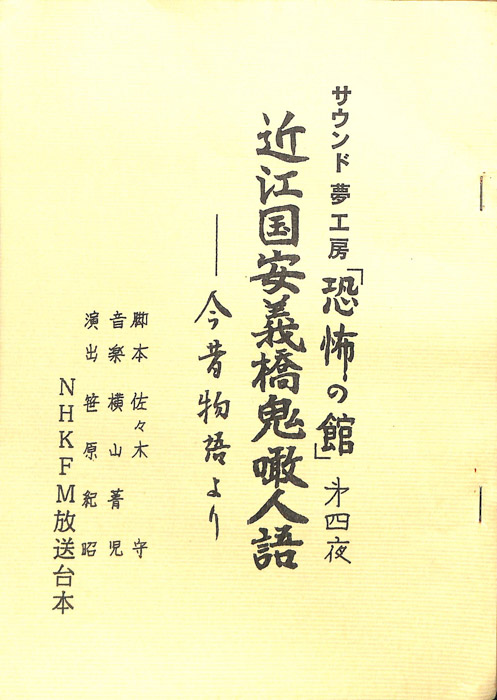 サウンド夢工房「恐怖の館」第四夜
近江国安義橋鬼噉人語
――今昔物語より
脚本 佐々木 守
音楽 横山菁児
演出 笹原紀昭
NHKFM放送台本